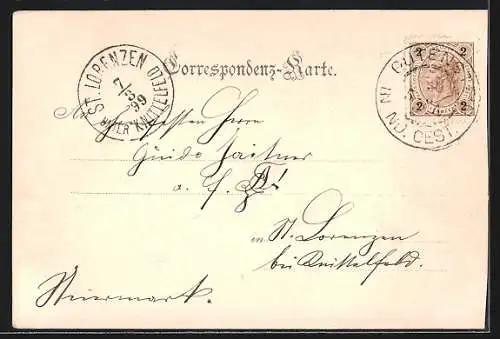 ST. LORENZEN
7/3
99
OBER KNITTELFELD
Correspondenz-Karte.
2 2
2 2
GUTEN
IN ND. OEST.
An
Herrn
Guido
a.
in St. Lorenzen
bei Knittelfeld.
Steiermark.